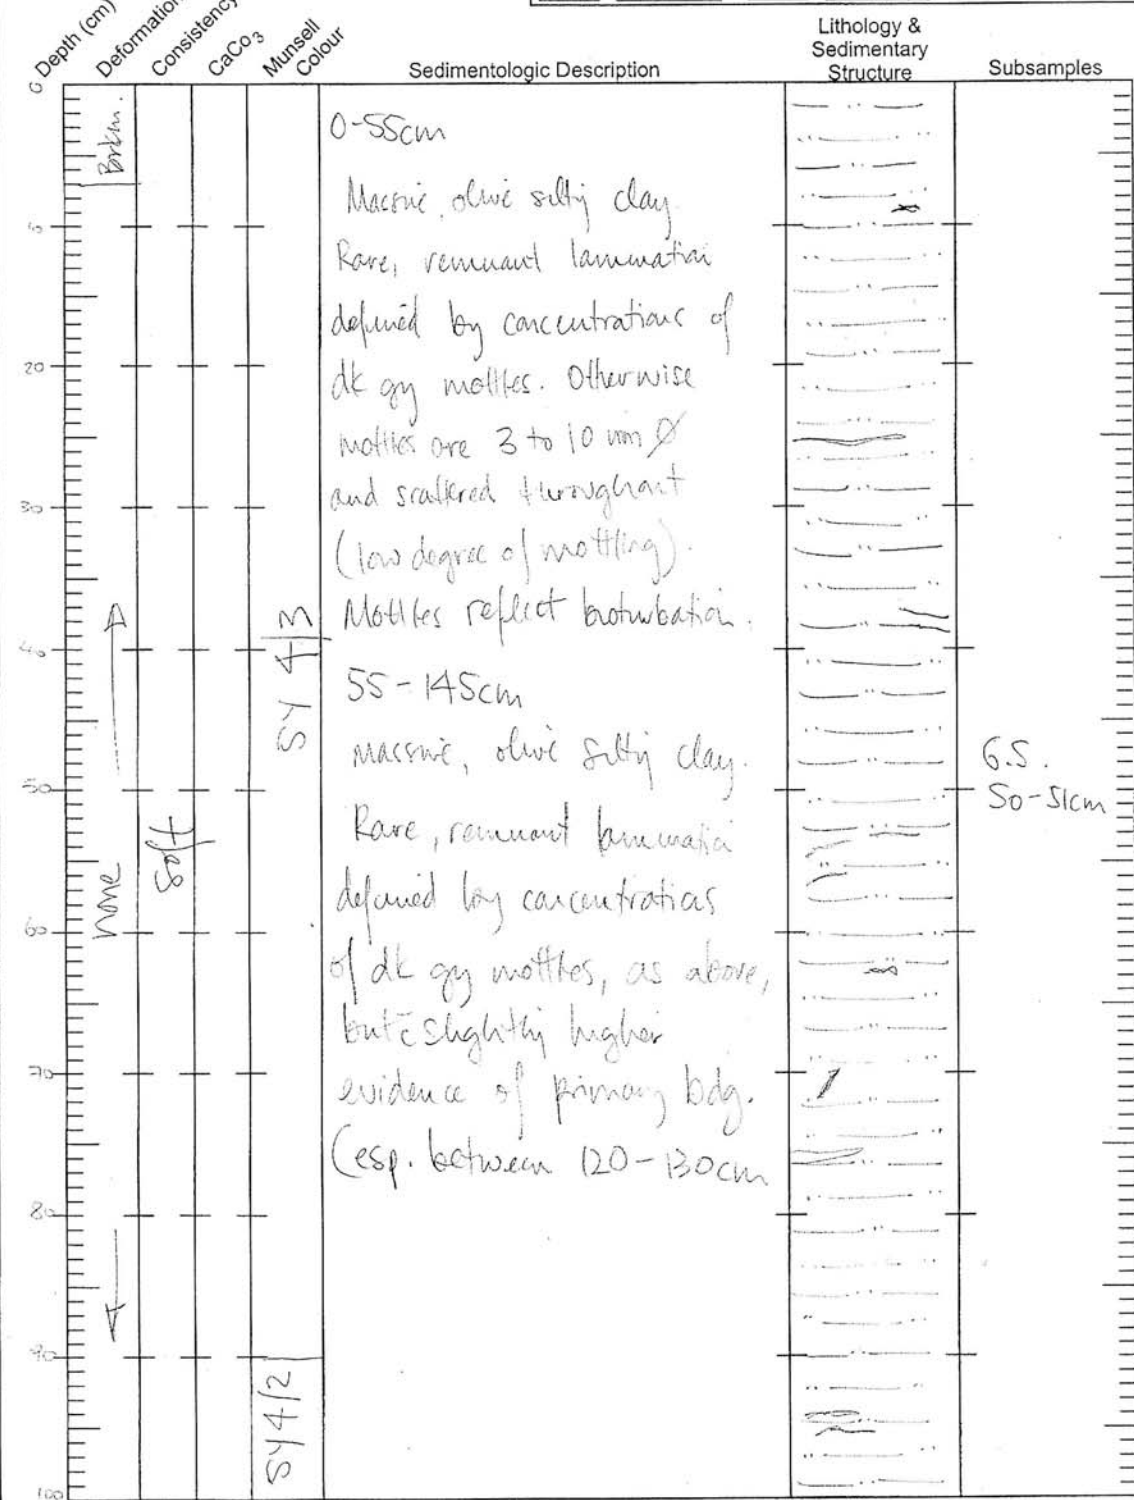 Depth (cm)
Deformation
Consistency
CaCo3
Munsell
Colour
Sedimentologic Description
Lithology &
Sedimentary
Structure
Subsamples
0
20
30
40
50
60
70
80
90
100
Brkn.
none
Soft
5Y 4/3
5Y4/2
0-55cm
Massive, olive silty clay.
Rare, remnant lamination
defined by concentrations of
dk gy mottles. Otherwise
mottles are 3 to 10 mm Ø
and scattered throughout
(low degree of mottling).
Mottles reflect bioturbation.
55-145cm
Massive, olive silty clay.
Rare, remnant lamination
defined by concentrations
of dk gy mottles, as above,
but c̄ slightly higher
evidence of primary bdg.
(esp. between 120-130cm
G.S.
50-51cm